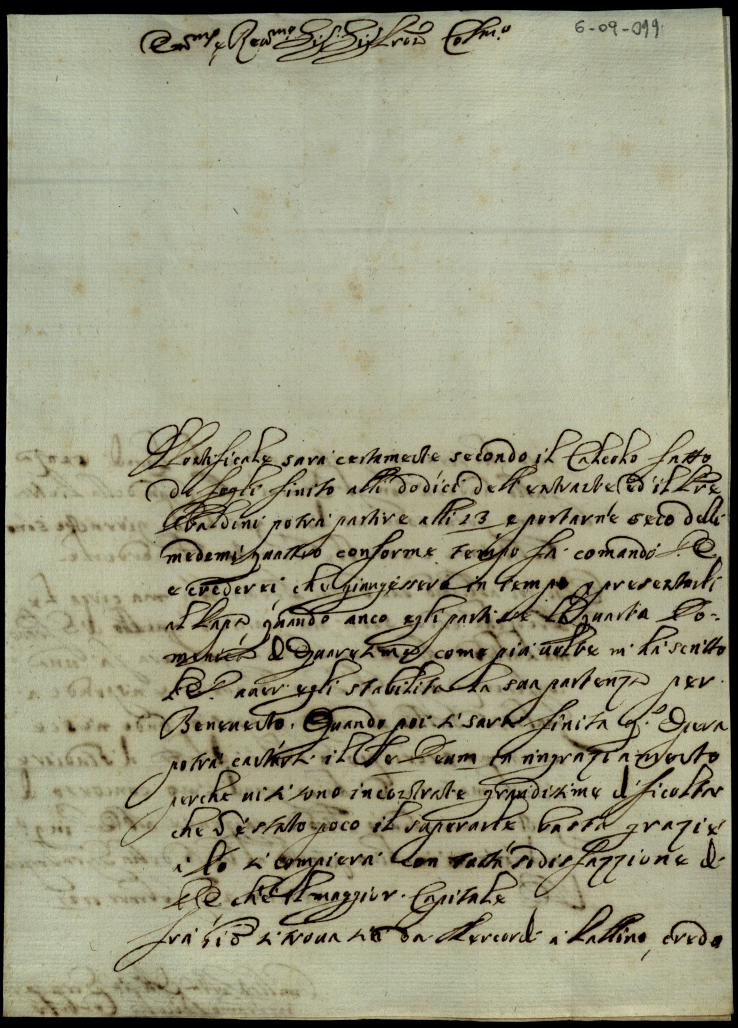 6-09-099
Em.mo e Rev.mo Sig. Sig. Pron. Col.mo
Pontificale sarà certamente secondo il Calcolo fatto
da fogli finito alli dodici dell'entrante, ed il Pre
Ubaldini potrà partire alli 13 e portarne seco delli
medemi quattro conforme tempo fà comandò V. E.
e crederei che giungessero in tempo p presentarli
al Papa quando anco egli partisse la quarta Do-
menica di Quaresima come più volte mi hà scritto
V. E. aver egli stabilita la sua partenza per
Benevento. Quando poi si sarà finita q.ta Opera
potrà cantarsi il Te Deum in ringraziamento
perche vi si sono incontrate grandissime difficoltà
che v'è stato poco il superarle basta grazie
a Dio si compierà con tutta sodisfazzione di
V. E. che è il maggior Capitale
Frà si trova da Mercordì a Pallino, credo